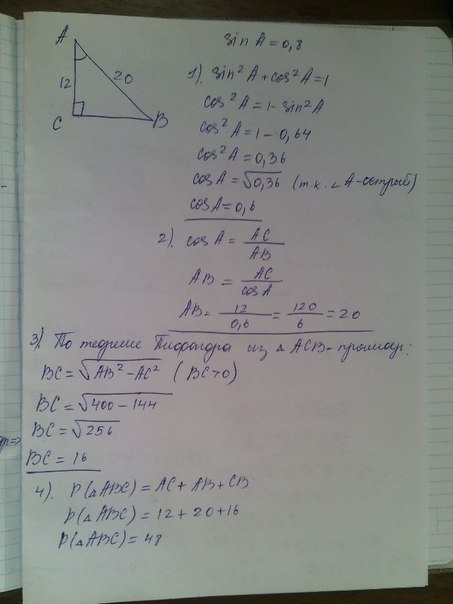 A
12
20
C
B
sin A = 0,8
1). sin²A + cos²A = 1
cos²A = 1 - sin²A
cos²A = 1 - 0,64
cos²A = 0,36
cos A = √0,36 (т.к. ∠A - острый)
cos A = 0,6
2). cos A = AC/AB
AB = AC/cos A
AB = 12/0,6 = 120/6 = 20
3). По теореме Пифагора из △ ACB - прямоуг:
BC = √AB² - AC² (BC > 0)
BC = √400 - 144
BC = √256
BC = 16
4). P(△ABC) = AC + AB + CB
P(△ABC) = 12 + 20 + 16
P(△ABC) = 48